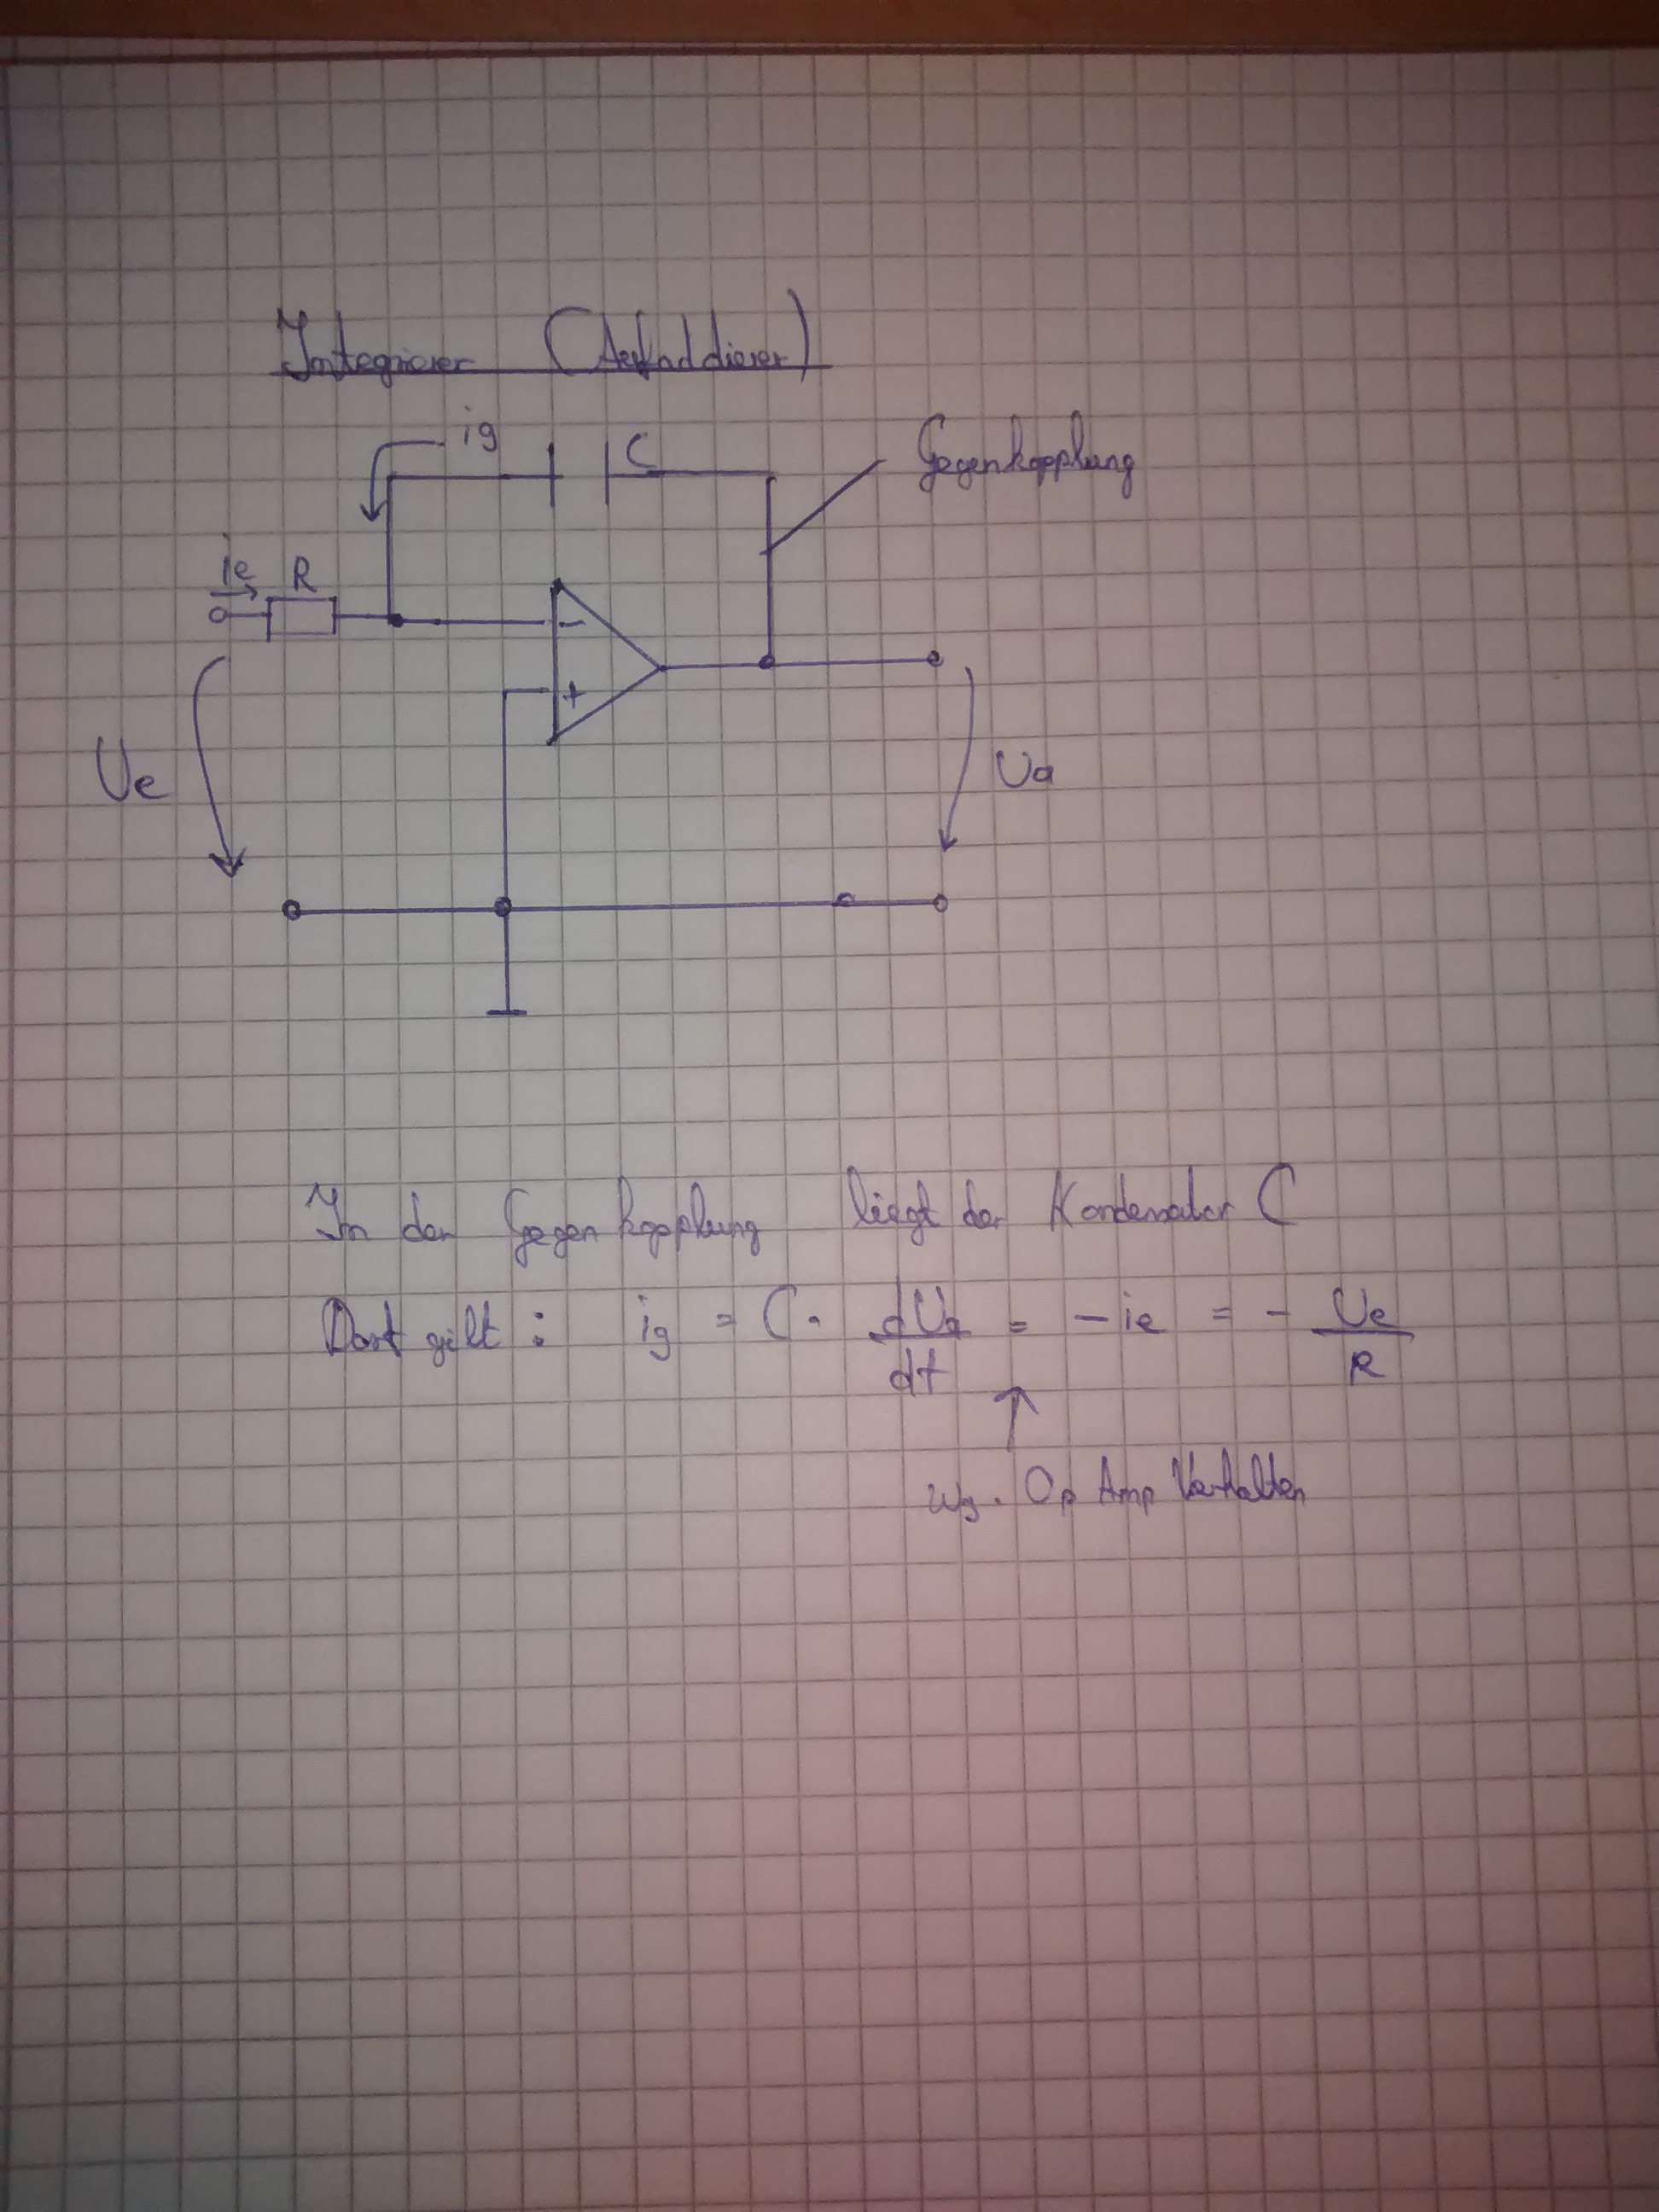 Integrierer (Aufaddierer)
ig
C
Gegenkopplung
ie
R
-
+
Ue
Ua
In der Gegenkopplung liegt der Kondensator C
Dort gilt: ig = C · dUa/dt = -ie = - Ue/R
↑
wg. Op Amp Verhalten